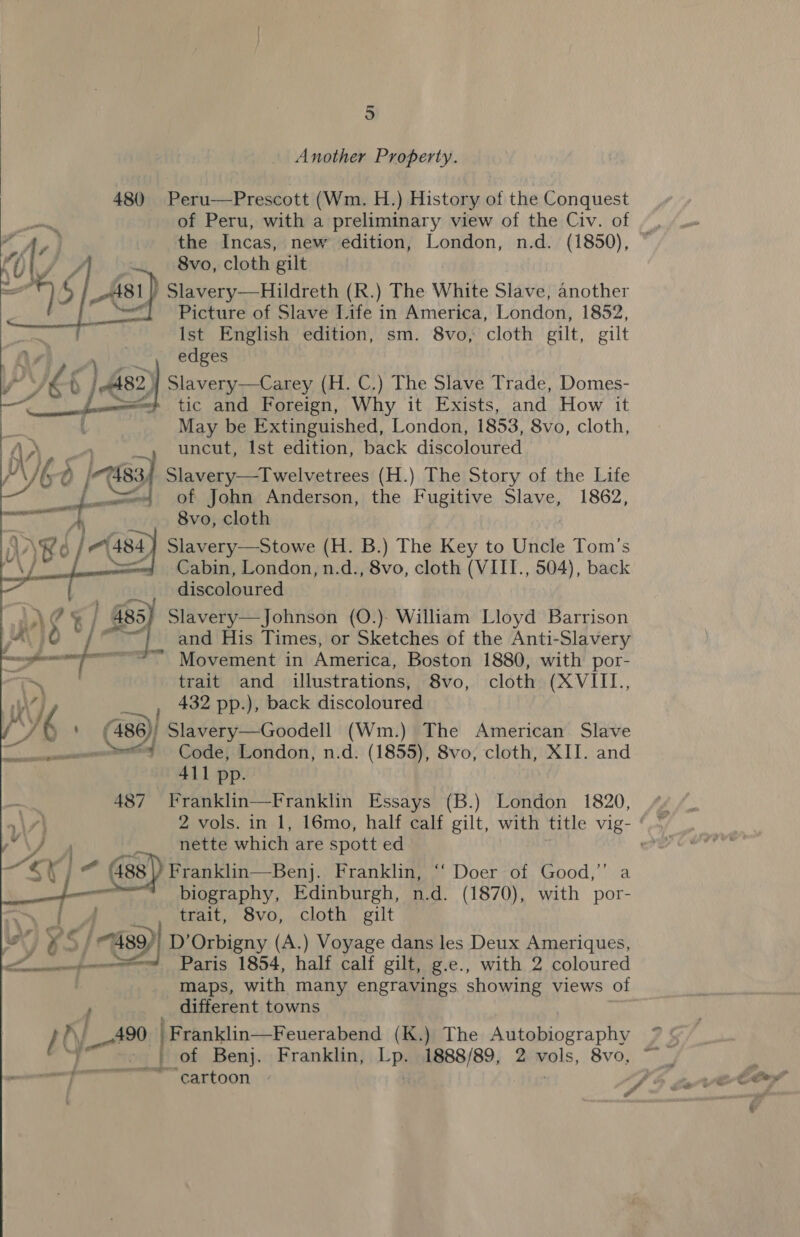 5
Another Property.
480 Peru—Prescott (Wm. H.) History of the Conquest
of Peru, with a preliminary view of the Civ. of
the Incas, new edition, London, n.d. (1850),
8vo, cloth gilt
481 Slavery—Hildreth (R.) The White Slave, another
Picture of Slave Life in America, London, 1852,
1st English edition, sm. 8vo, cloth gilt, gilt
edges
482 Slavery—Carey (H. C.) The Slave Trade, Domes-
tic and Foreign, Why it Exists, and How it
May be Extinguished, London, 1853, 8vo, cloth,
uncut, 1st edition, back discoloured
483 Slavery—Twelvetrees (H.) The Story of the Life
of John Anderson, the Fugitive Slave, 1862,
8vo, cloth
484 Slavery—Stowe (H. B.) The Key to Uncle Tom's
Cabin, London, n.d., 8vo, cloth (VIII., 504), back
discoloured
485 Slavery—Johnson (O.) William Lloyd Barrison
and His Times, or Sketches of the Anti-Slavery
Movement in America, Boston 1880, with por-
trait and illustrations, 8vo, cloth (XVIII.,
432 pp.), back discoloured
486 Slavery—Goodell (Wm.) The American Slave
Code, London, n.d. (1855), 8vo, cloth, XII. and
411 pp.
487 Franklin—Franklin Essays (B.) London 1820,
2 vols. in 1, 16mo, half calf gilt, with title vig-
nette which are spott ed
488 Franklin—Benj. Franklin, “ Doer of Good,” a
biography, Edinburgh, n.d. (1870), with por-
trait, 8vo, cloth gilt
489 D'Orbigny (A.) Voyage dans les Deux Ameriques,
Paris 1854, half calf gilt, g.e., with 2 coloured
maps, with many engravings showing views of
different towns
490 Franklin—Feuerabend (K.) The Autobiography
of Benj. Franklin, Lp. 1888/89, 2 vols, 8vo,
cartoon